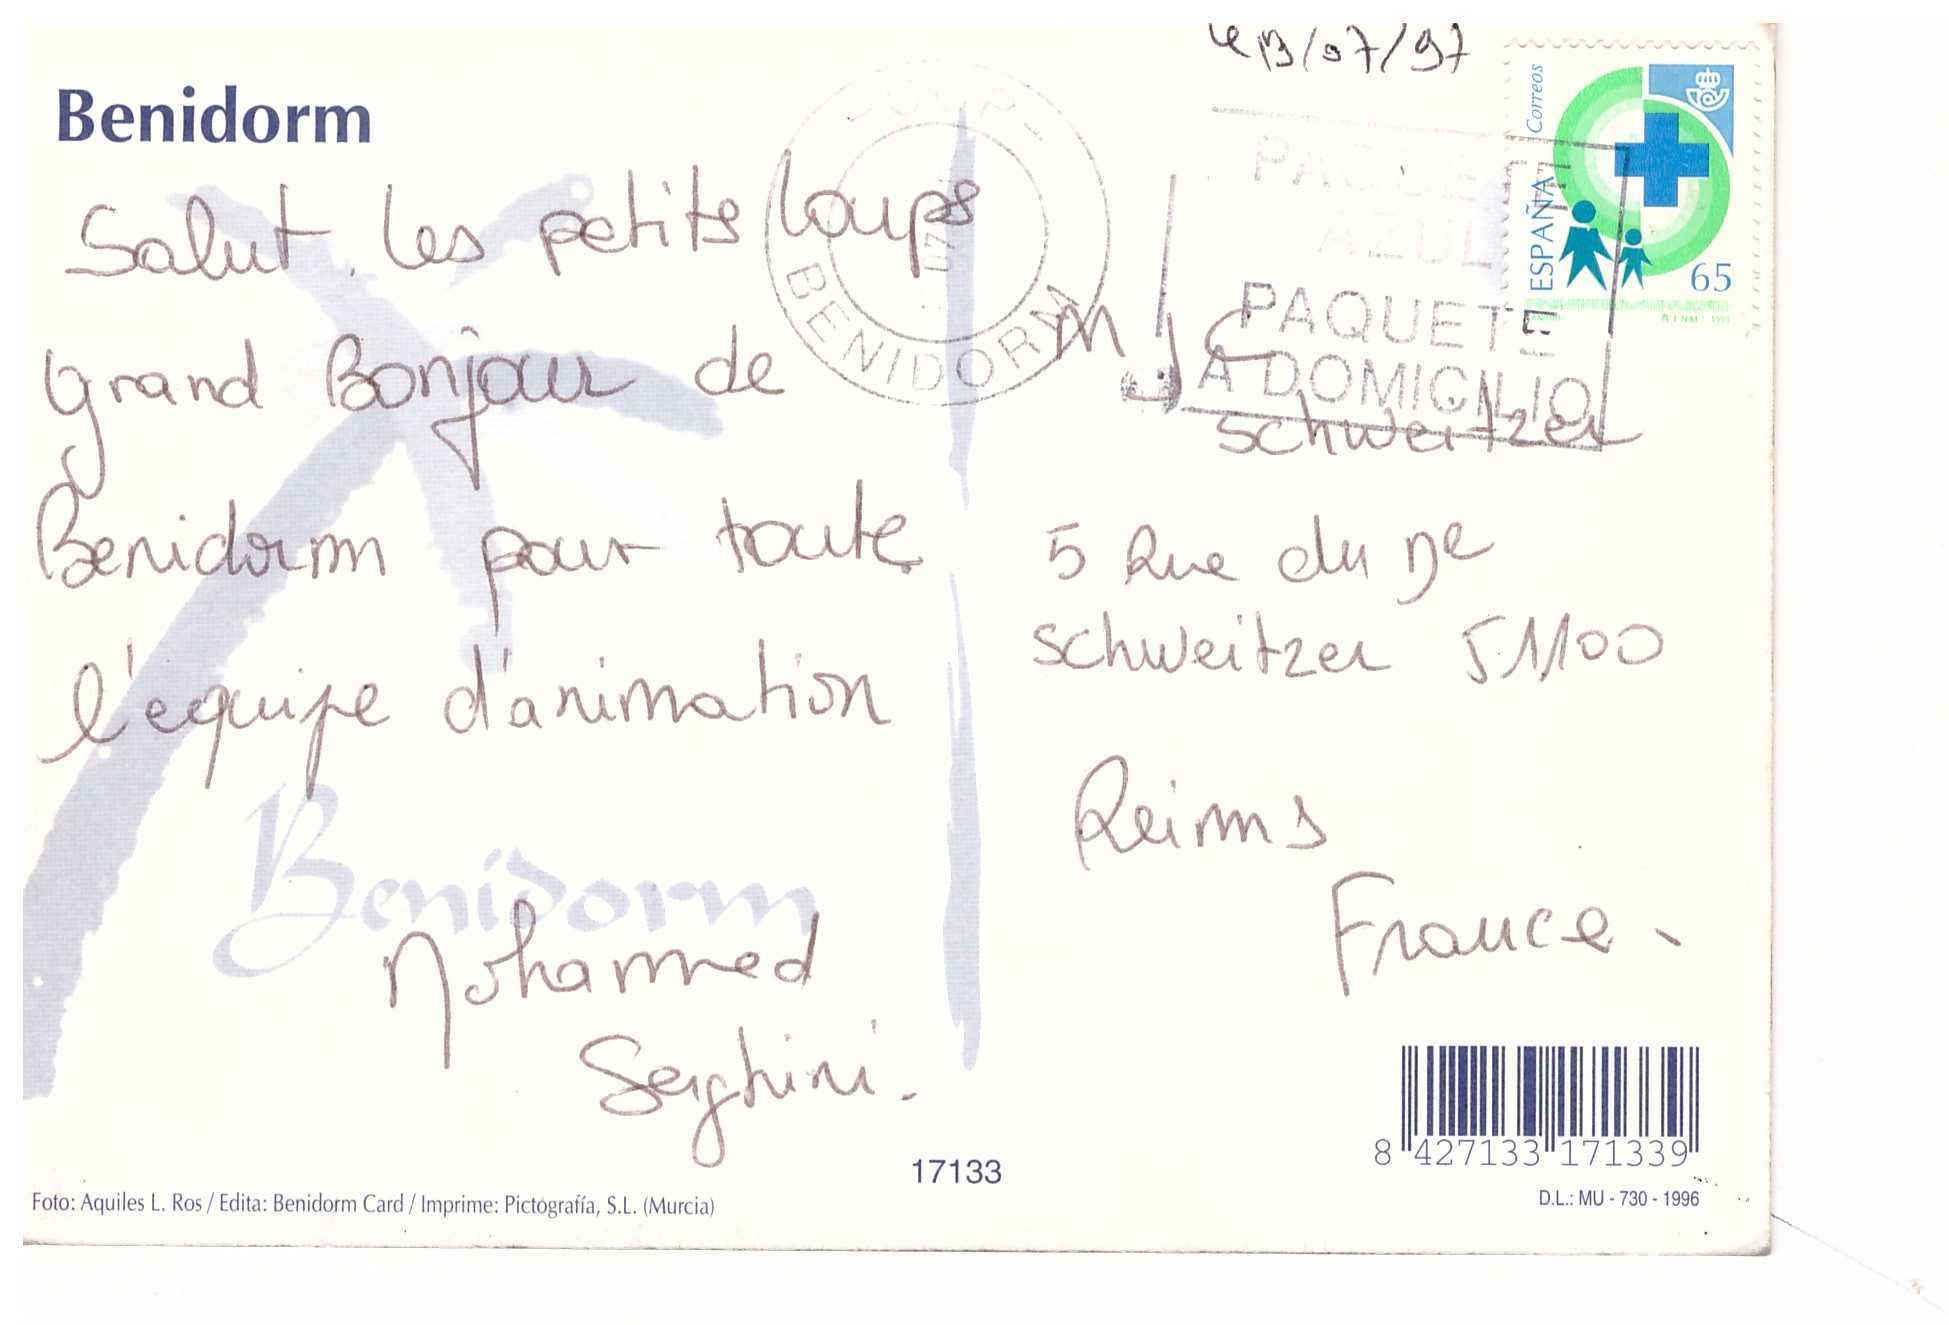 Le 13/07/97
Benidorm
Salut les petits loups
grand Bonjour de
Benidorm pour toute
l'équipe d'animation
Benidorm
Mohammed
Seghini.
BENIDORM
PAQUETE
AZUL
PAQUETE
A DOMICILIO
Correos
ESPAÑA
65
M J C
Schweitzer
5 Rue du De
Schweitzer 51100
Reims
France.
8 427133 171339
17133
D.L.: MU - 730 - 1996
Foto: Aquiles L. Ros / Edita: Benidorm Card / Imprime: Pictografía, S.L. (Murcia)